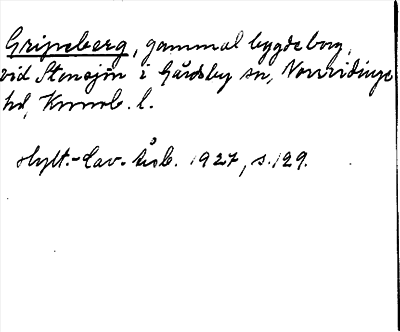 Gripeberg, gammal bygdeborg,
vid Stensjön i Gårdsby sn, Norrvidinge
hd, Kronob. l.
Hylt.-Cav. Årsb. 1927, s. 129.